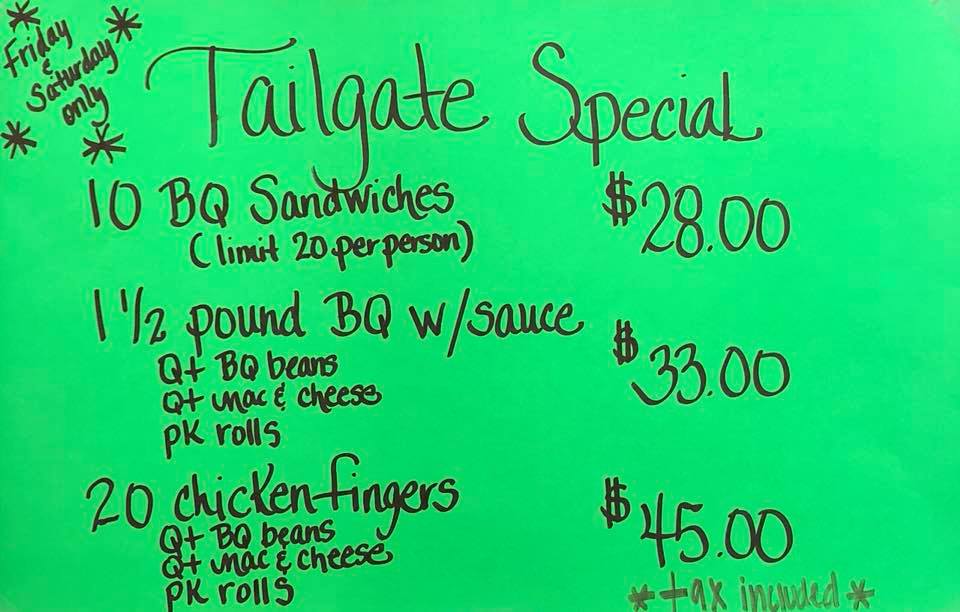 *Friday*
&
Saturday
only
* *
Tailgate Special
10 BQ Sandwiches $28.00
(limit 20 per person)
1 1/2 pound BQ w/sauce $33.00
Qt BQ beans
Qt mac & cheese
pk rolls
20 chicken fingers $45.00
Qt BQ beans
Qt mac & cheese
pk rolls
*tax included*